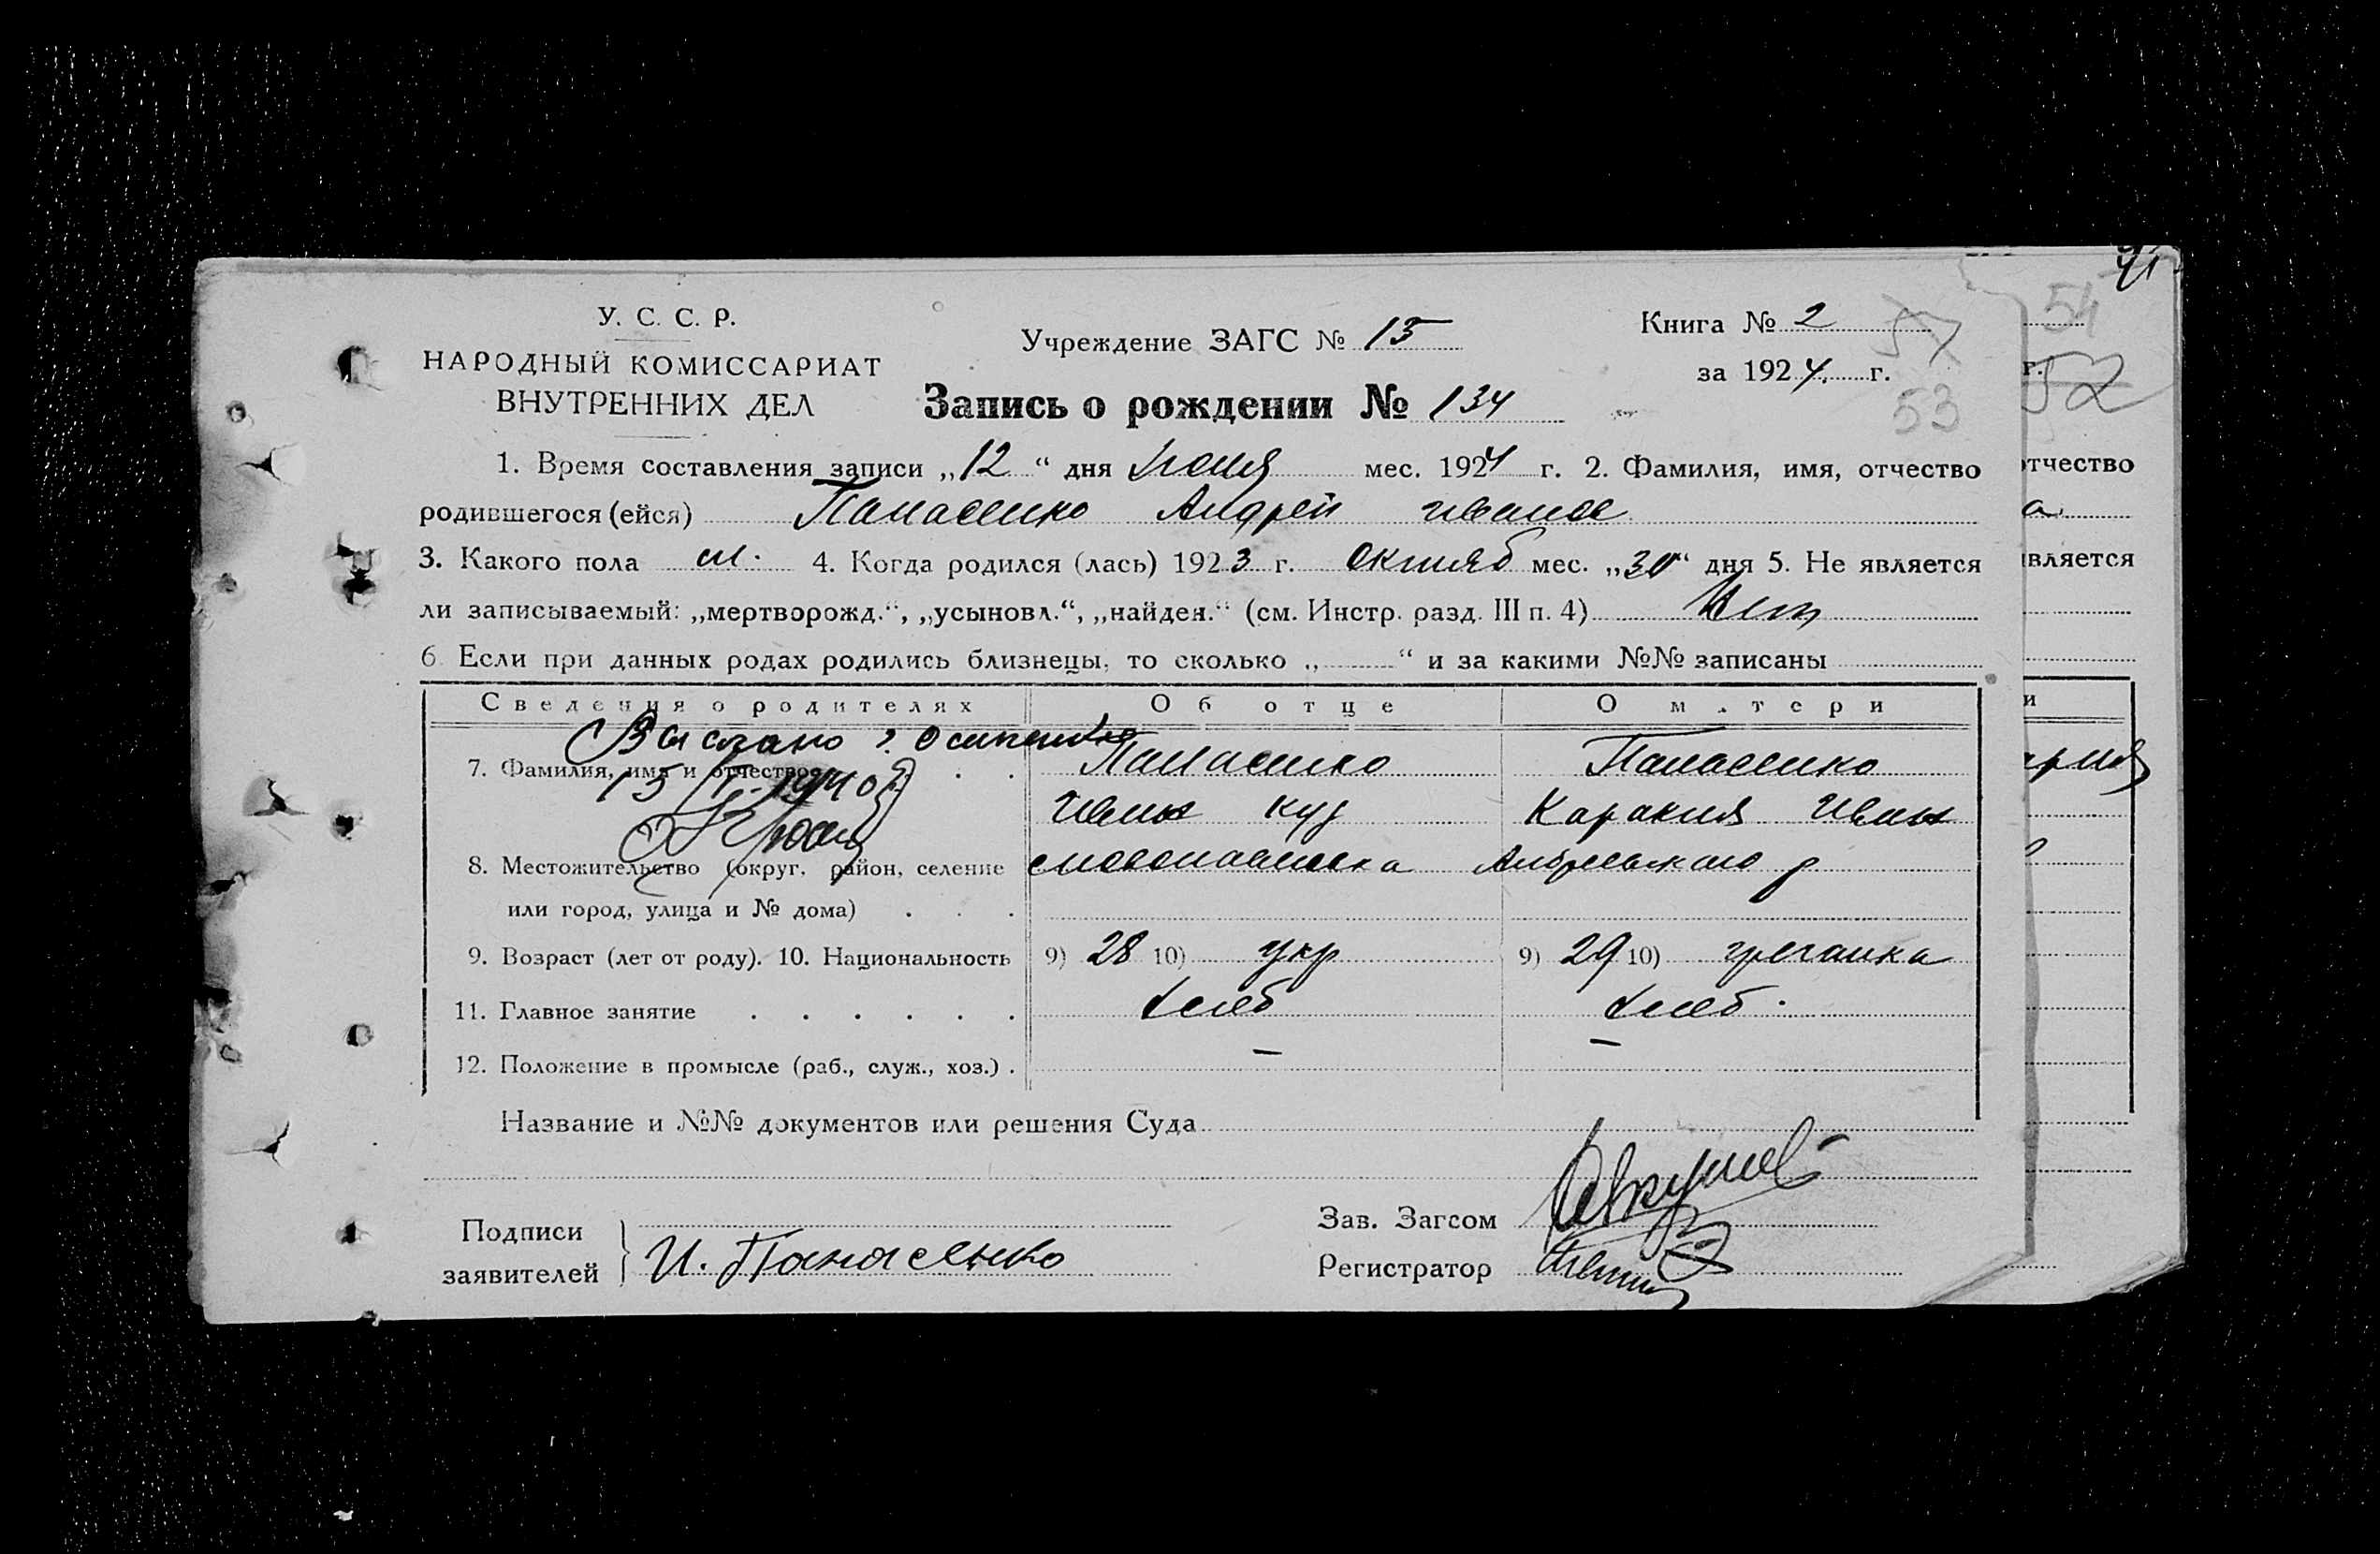 У. С. С. Р.
НАРОДНЫЙ КОМИССАРИАТ
ВНУТРЕННИХ ДЕЛ
Учреждение ЗАГС № 15
Книга № 2 57
за 1924 г. 53
Запись о рождении № 134
1. Время составления записи „12“ дня июня мес. 1924 г. 2. Фамилия, имя, отчество
родившегося (ейся) Панасенко Андрей Иванов
3. Какого пола м. 4. Когда родился (лась) 1923 г. октяб мес. „30“ дня 5. Не является
ли записываемый: „мертворожд.“, „усыновл.“, „найден.“ (см. Инстр. разд. III п. 4) Нет
6 Если при данных родах родились близнецы, то сколько „ “ и за какими №№ записаны
Сведения о родителях Об отце О матери
Выслано г. Осипенко
7. Фамилия, имя и отчество Панасенко Панасенко
Иван
8. Местожительство (округ, район, селение
или город, улица и № дома)
9. Возраст (лет от роду). 10. Национальность 9) 28 10) укр 9) 29 10) гречанка
11. Главное занятие хлеб хлеб.
12. Положение в промысле (раб., служ., хоз.) . — —
Название и №№ документов или решения Суда
Подписи
заявителей И. Панасенко
Зав. Загсом
Регистратор
54
г.
52
отчество
а
является
и